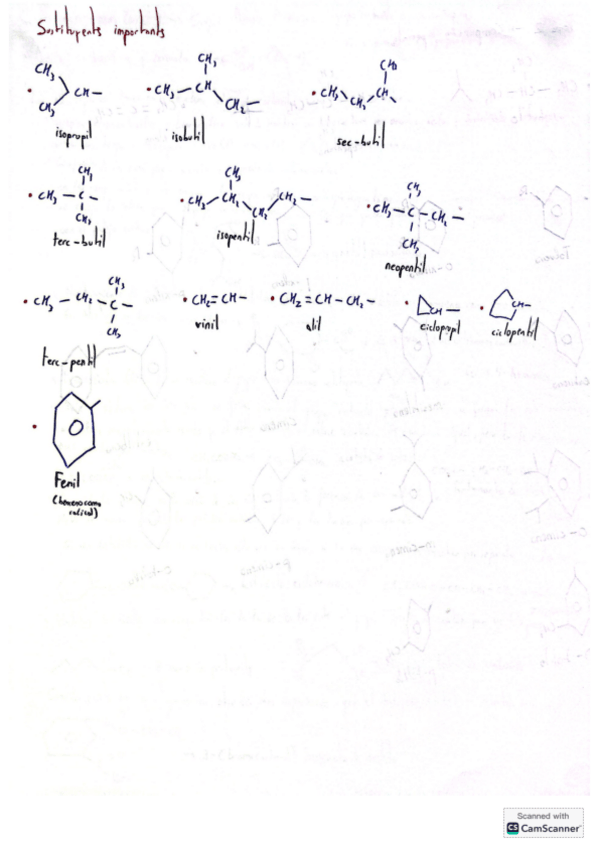 Sustituyents importants
CH₃
CH-
CH₃
isopropil
CH₃
CH₃ - CH
CH₂-
isobutil
CH₃
CH₃ CH₂ CH
sec-butil
CH₃
CH₃ - C -
CH₃
terc-butil
CH₃
CH₃ CH₂ CH₂ CH₂ -
isopentil
CH₃
CH₃ - C - CH₂ -
CH₃
neopentil
CH₃
CH₃ - CH₂ - C -
CH₃
terc-pentil
CH₂=CH-
vinil
CH₂=CH-CH₂-
alil
CH-
ciclopropil
CH-
ciclopentil
Fenil
(benceno como
radical)
Scanned with
CS CamScanner